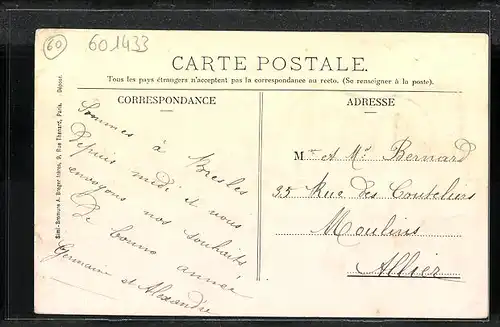 60
601433
CARTE POSTALE.
Tous les pays étrangers n'acceptent pas la correspondance au recto. (Se renseigner à la poste).
CORRESPONDANCE
ADRESSE
Sommes à Bresles
depuis midi et vous
envoyons nos souhaits
De bonne année
Germaine et Alexandre
Mr et Me Bernard
35 Rue des Couteliers
Moulins
Allier
Simi-Bromure A. Breger frères, 9, Rue Thénard, Paris. Déposé.